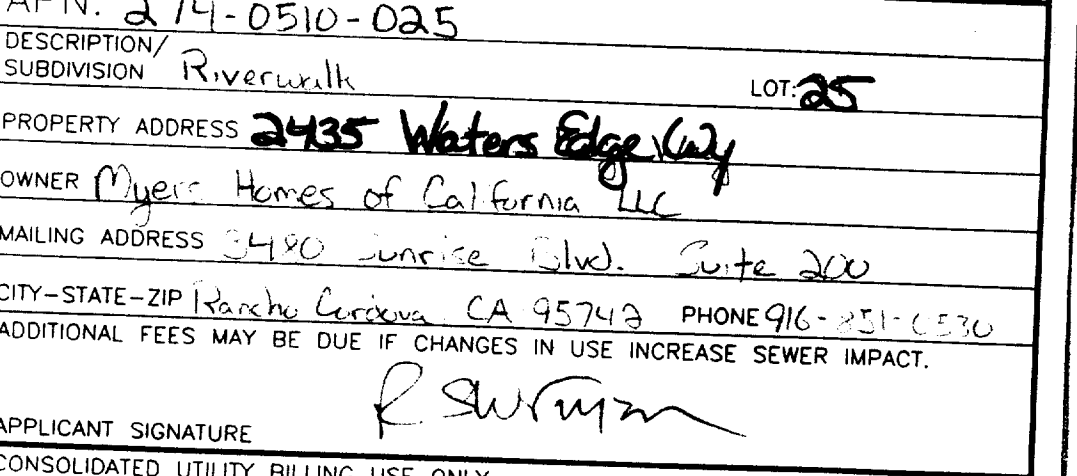 APN: 274-0510-025
DESCRIPTION/
SUBDIVISION Riverwalk LOT: 25
PROPERTY ADDRESS 2435 Waters Edge Wy
OWNER Myers Homes of California LLC
MAILING ADDRESS 3490 Sunrise Blvd. Suite 200
CITY-STATE-ZIP Rancho Cordova CA 95742 PHONE 916-851-0530
ADDITIONAL FEES MAY BE DUE IF CHANGES IN USE INCREASE SEWER IMPACT.
APPLICANT SIGNATURE
CONSOLIDATED UTILITY BILLING USE ONLY